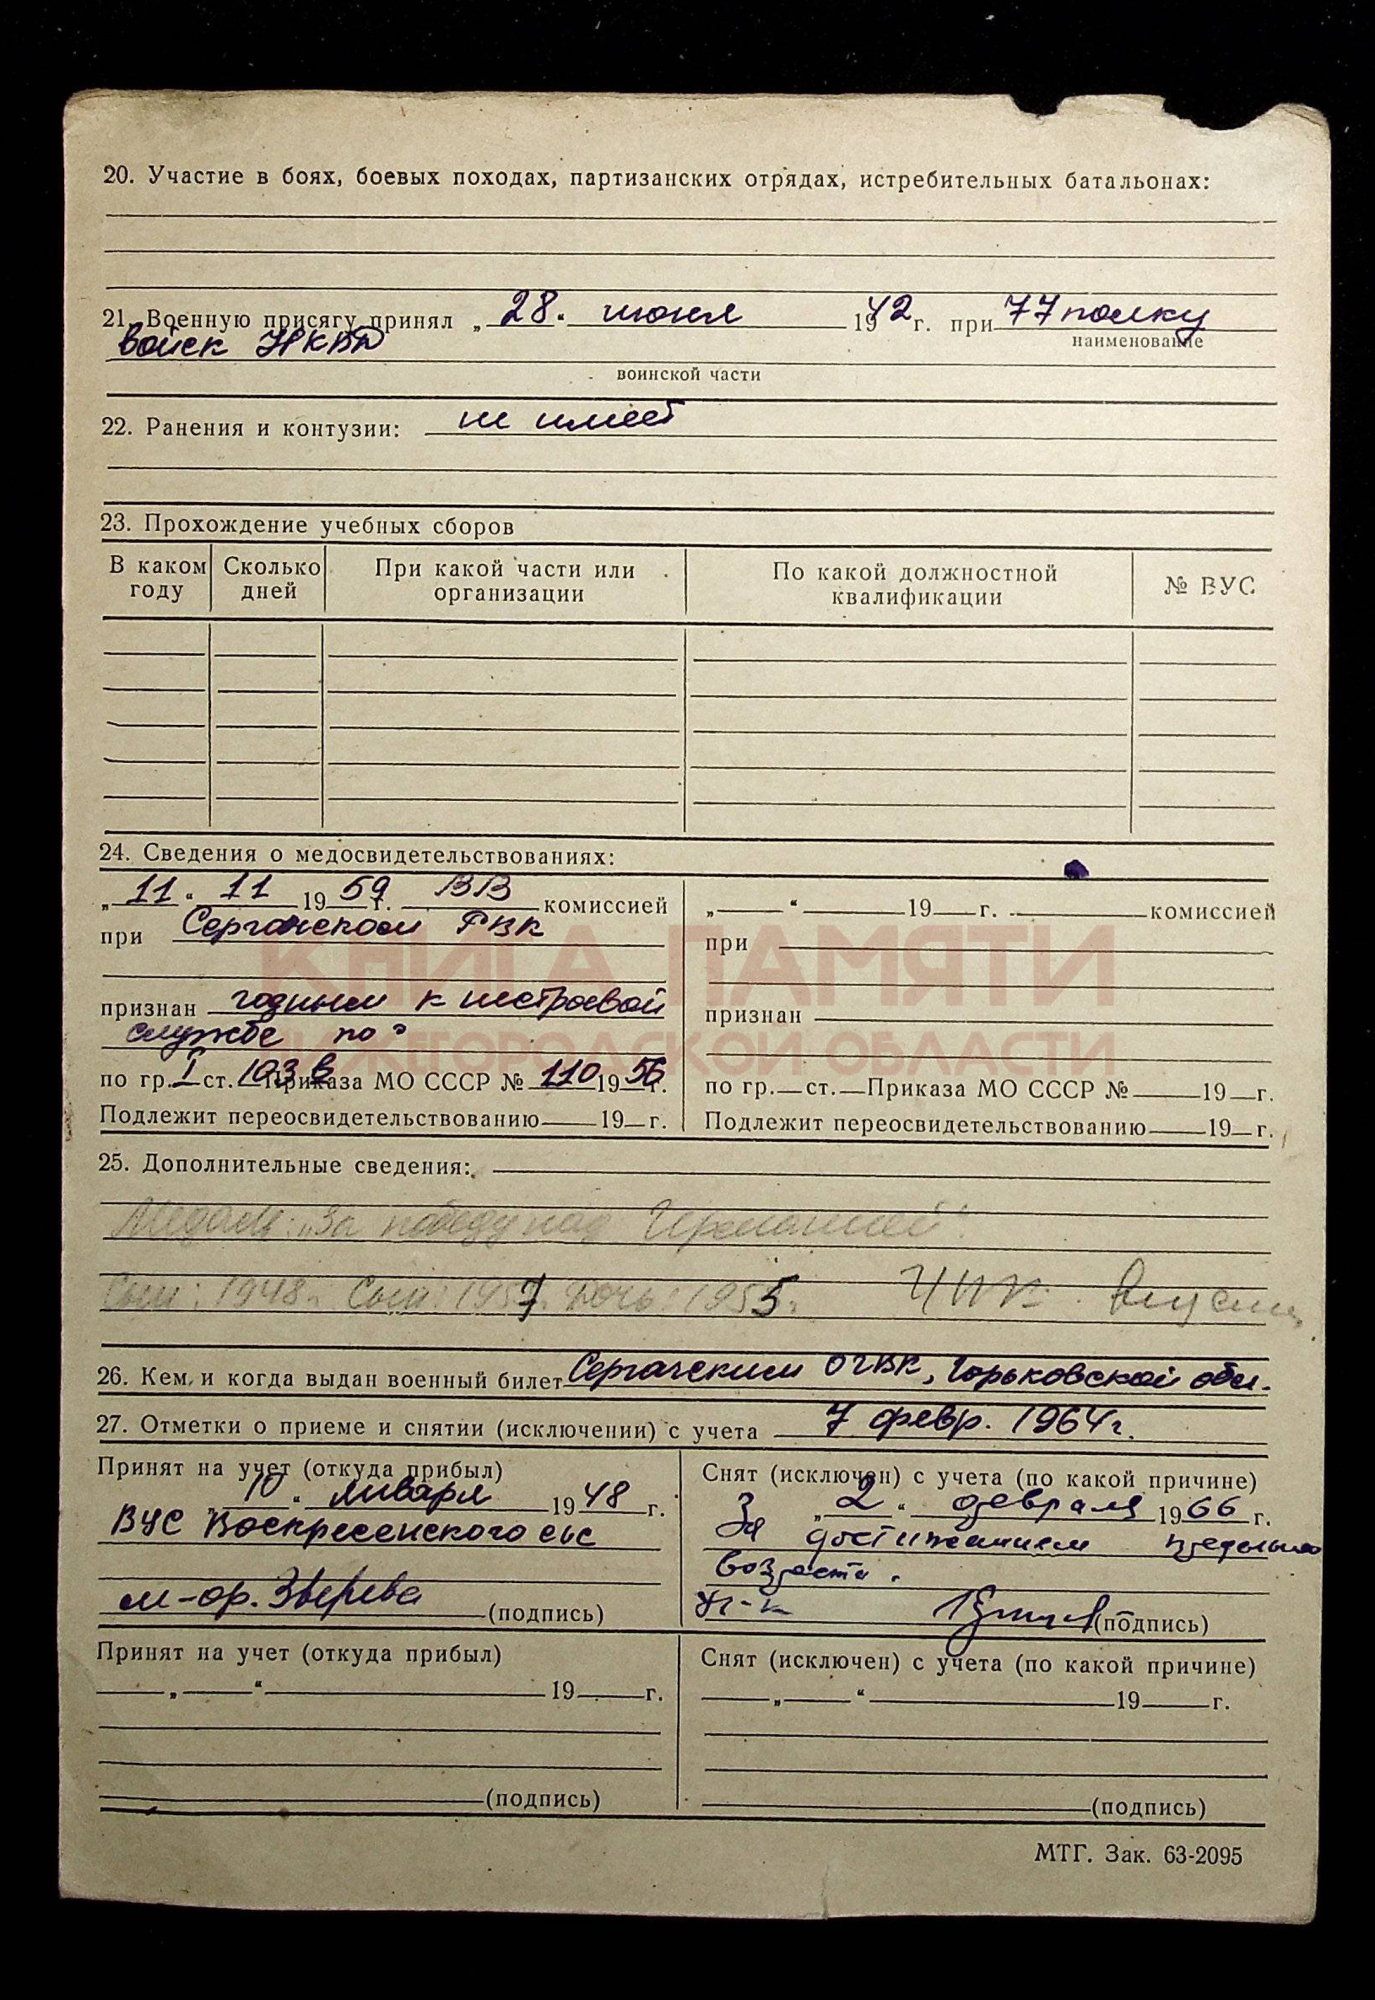 20. Участие в боях, боевых походах, партизанских отрядах, истребительных батальонах:
21. Военную присягу принял „28“ июня 1942 г. при 77 полку
наименование
войск НКВД
воинской части
22. Ранения и контузии: не имеет
23. Прохождение учебных сборов
В каком году Сколько дней При какой части или организации По какой должностной квалификации № ВУС
24. Сведения о медосвидетельствованиях:
„11“ 11 1959 г. ВВ комиссией
при Сергачском РВК
признан годным к нестроевой
службе по
по гр. I ст. 103 в Приказа МО СССР № 110 1956 г.
Подлежит переосвидетельствованию 19 г.
„ “ 19 г. комиссией
при
признан
по гр. ст. Приказа МО СССР № 19 г.
Подлежит переосвидетельствованию 19 г.
КНИГА ПАМЯТИ
НИЖЕГОРОДСКОЙ ОБЛАСТИ
25. Дополнительные сведения:
Медаль: „За победу над Германией“
Сын: 1948 г. Сын: 1957. Дочь: 1955 г.
26. Кем и когда выдан военный билет Сергачским ОГВК, Горьковской обл.
27. Отметки о приеме и снятии (исключении) с учета 7 февр. 1964 г.
Принят на учет (откуда прибыл)
„10“ января 1948 г.
ВУС Воскресенского с/с
м-ор. Зверева (подпись)
Снят (исключен) с учета (по какой причине)
„2“ февраля 1966 г.
За достижением предельного
возраста.
(подпись)
Принят на учет (откуда прибыл)
„ “ 19 г.
(подпись)
Снят (исключен) с учета (по какой причине)
„ “ 19 г.
(подпись)
МТГ. Зак. 63-2095